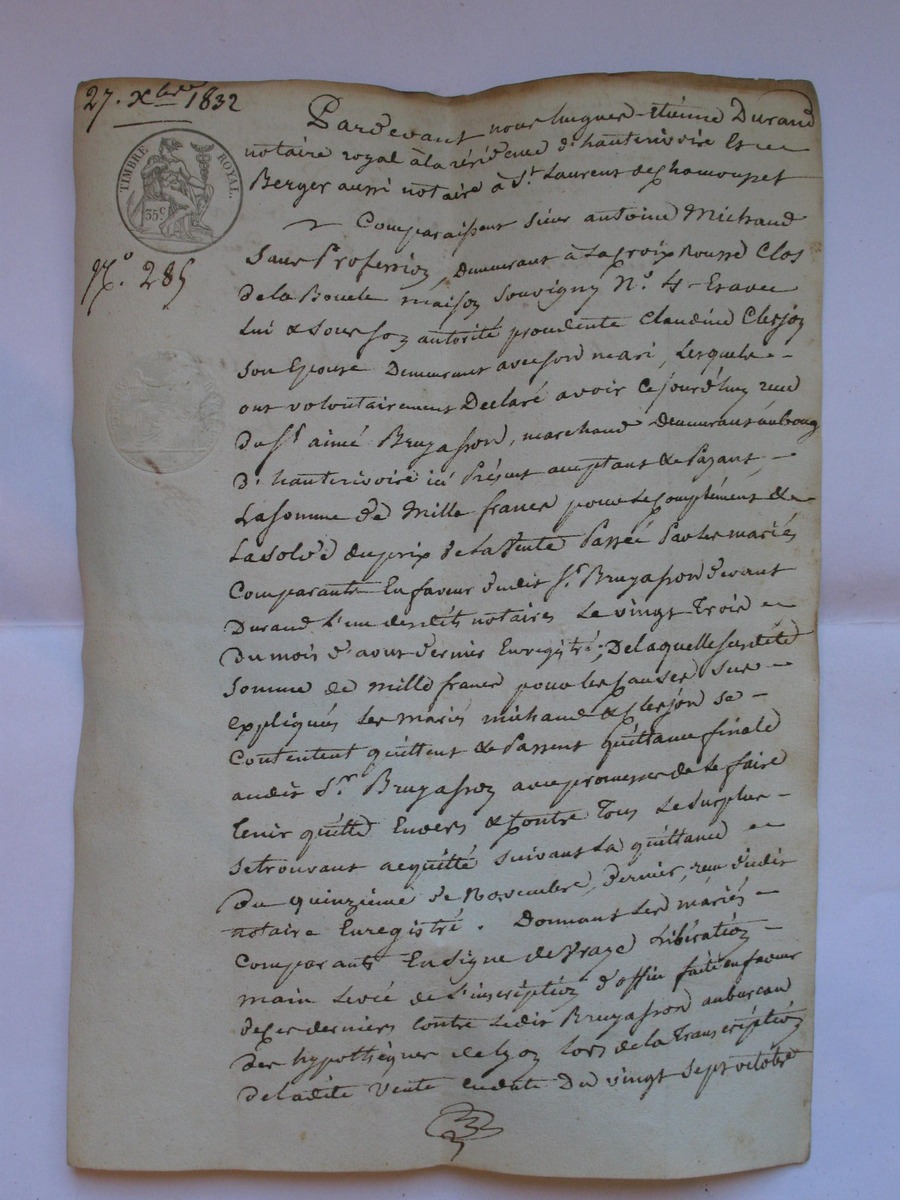 27. Xbre 1832
TIMBRE ROYAL.
35c
N.º 285
Pardevant nous hugues-étienne Durand
notaire royal à la résidence d'hauterivoire Et
Berger aussi notaire à St Laurent de Chamousset
Comparaissent Sieur antoine Michaud
Sans Profession, Demeurant à La Croix Rousse Clos
de la Boucle maison Souvigny N.º 4 Et avec
Lui & Sous Son autorité prudente Claudine Clerjon
Son Epouse Demeurant avec Son mari, Lesquels
ont volontairement Déclaré avoir Ce jourd'huy reçu
du Sr aimé Bruyasson, marchand Demeurant au bourg
d'hauterivoire ici Présent acceptant & Payant,
La Somme de Mille francs pour Le Complément &
La Solde du prix de La Vente Passée Par Les mariés
Comparants En faveur dudit Sr Bruyasson devant
Durand L'un desdits notaires Le vingt Trois
du mois d'aout dernier Enregistré; De laquelle susdite
Somme de mille francs pour les Causes Sus
Expliqués Les mariés michaud & Clerjon Se
Contentent quittent & Passent quittance finale
audit Sr Bruyasson avec promesse de Le faire
tenir quitte Envers & Contre Tous Le Surplus
Se trouvant acquitté Suivant La quittance
du quinzieme de Novembre dernier, reçu dudit
notaire Enregistré. Donnant Les mariés
Comparants En Signe de Vraye Libération
main Levée de L'inscription d'office faite en faveur
de Ces derniers Contre Ledit Bruyasson au bureau
des hypothèques de Lyon Lors de la Transcription
de Ladite Vente En date Du vingt Sept octobre